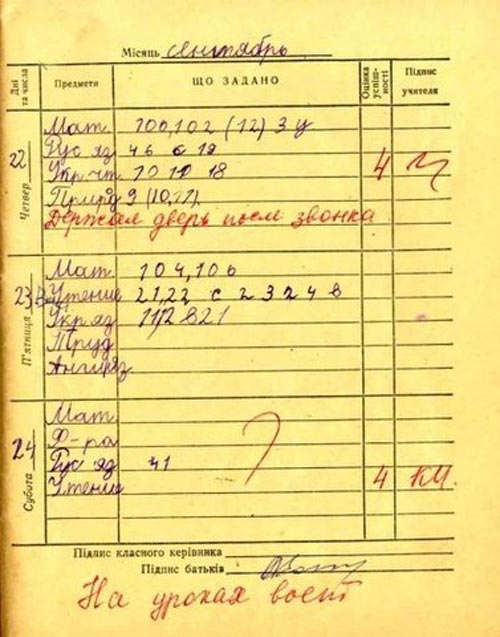 Місяць сентябрь
Дні та числа Предмети ЩО ЗАДАНО Оцінка успіш-ності Підпис учителя
22 Четвер
Мат. 100,102 (12) 3 у
Рус яз 46 с 19
Укр. чт. 10 10 18 4
Прир 9 (10,11).
Держал дверь после звонка
23 П'ятниця
Мат. 104,106
Чтение 21,22 с 23 24 в
Укр яз 112 821
Труд
Англ яз
24 Субота
Мат.
Ф-ра
Рус яз 41
Чтение 4 КМ.
Підпис класного керівника
Підпис батьків
На уроках воет